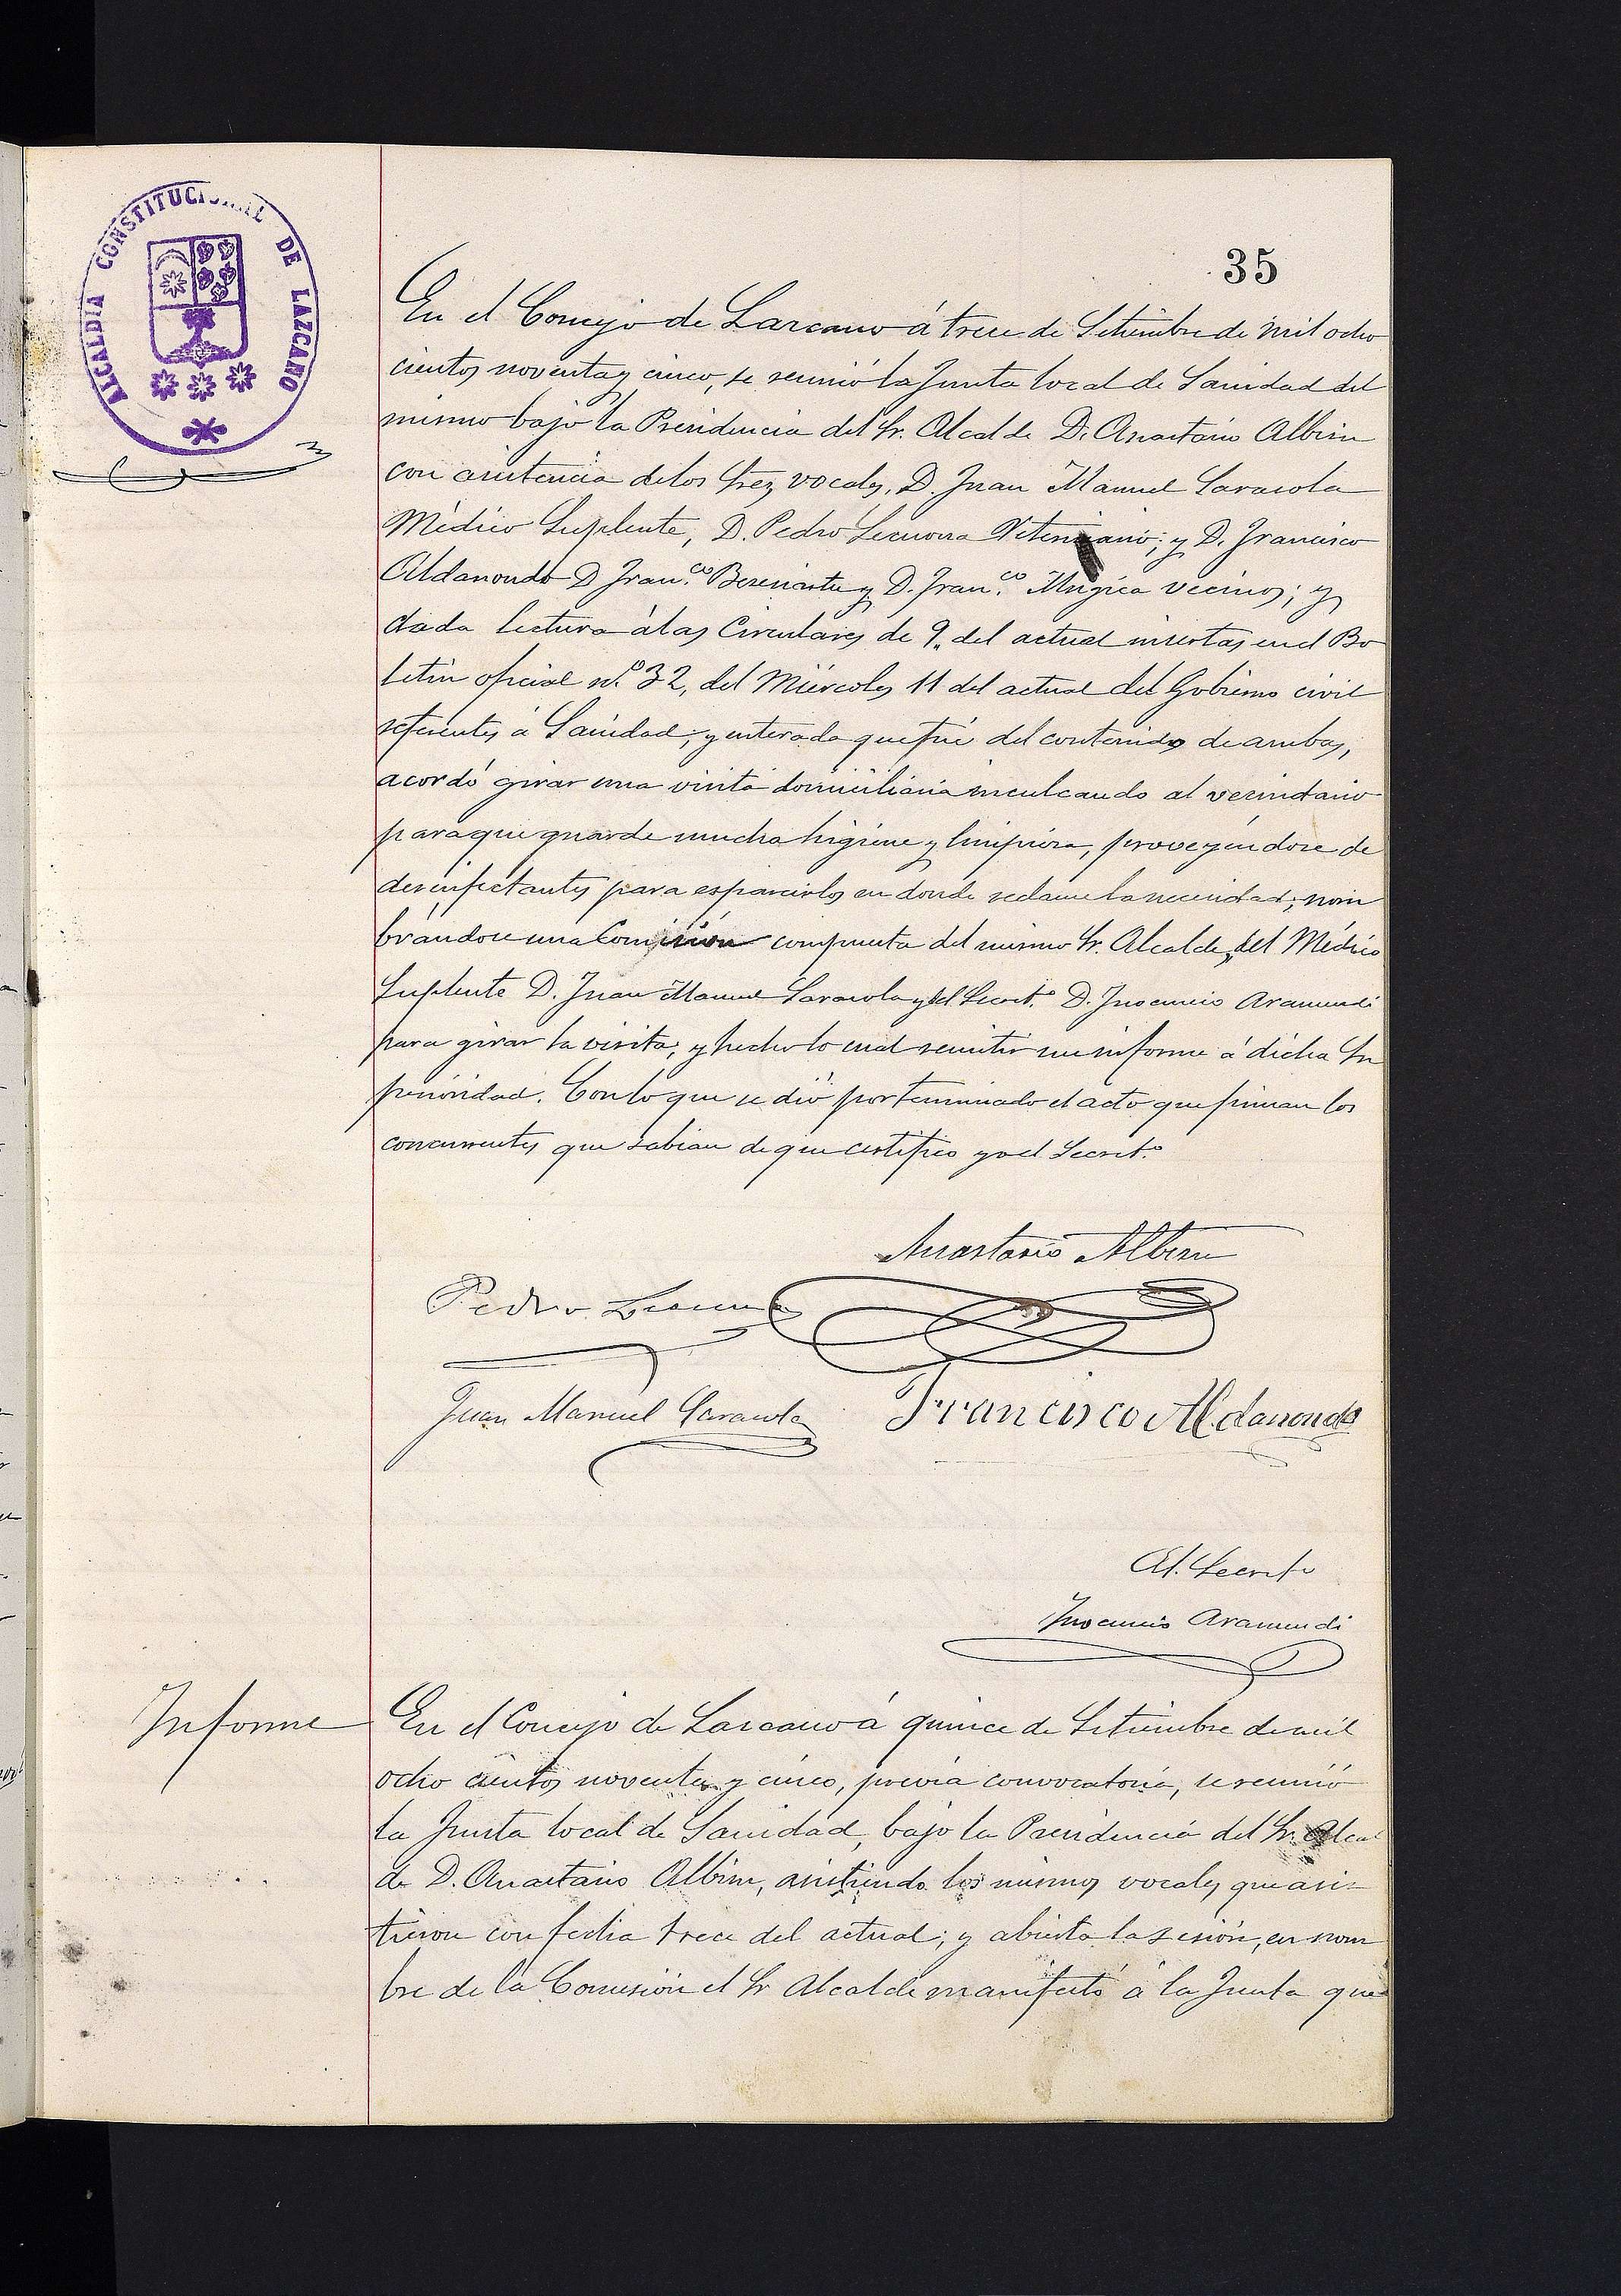 ALCALDIA CONSTITUCIONAL DE LAZCANO
35
En el Concejo de Lazcano á trece de Setiembre de mil ocho
cientos noventa y cinco, se reunió la Junta local de Sanidad del
mismo bajo la Presidencia del Sr. Alcalde D. Anastasio Albisu
con asistencia de los Sres vocales, D. Juan Manuel Sarasola
Médico Suplente, D. Pedro Lecuona Veterinario; y D. Francisco
Aldanondo D Fran.co Bereciartu y D. Fran.co Mugica vecinos; y
dada lectura á las Circulares de 9 del actual insertas en el Bo
letin oficial n.o 32, del Miércoles 11 del actual del Gobierno civil
referentes á Sanidad, y enterada que fué del contenido de ambas,
acordó girar una visita domiciliaria inculcando al vecindario
para que guarde mucha higiene y limpieza, proveyéndose de
desinfectantes para esparcirlos en donde reclame la necesidad; nom
brándose una Comisión compuesta del mismo Sr. Alcalde, del Médico
Suplente D. Juan Manuel Sarasola y del Secret.o D. Inocencio Aramendi
para girar la visita; y hecho lo cual remitir un informe á dicha Su
perioridad. Con lo que se dió por terminado el acto que firman los
concurrentes que sabian de que certifico yo el Secret.o
Anastasio Albisu
Pedro Lecuona
Juan Manuel Sarasola Francisco Aldanondo
El Secreto
Inocencio Aramendi
Informe
En el Concejo de Lazcano á quince de Setiembre de mil
ocho cientos noventa y cinco, previa convocatoria, se reunió
la Junta local de Sanidad, bajo la Presidencia del Sr. Alcal
de D. Anastasio Albisu, asistiendo los mismos vocales que asis
tieron con fecha trece del actual; y abierta la sesión, en nom
bre de la Comisión el Sr Alcalde manifestó á la Junta que